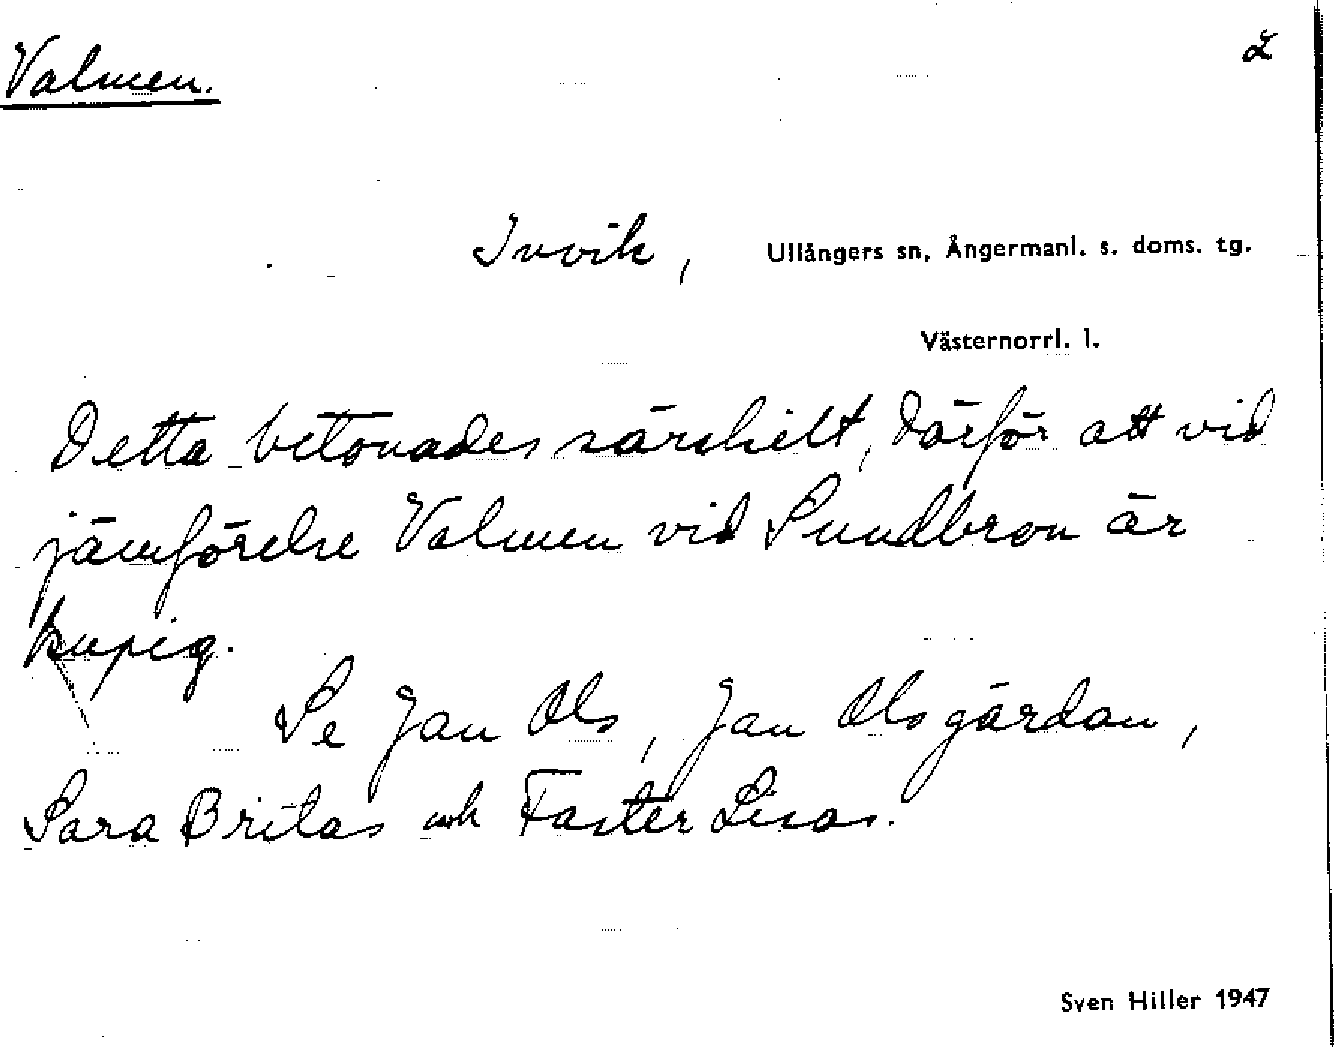 Valmen.
2
Invik, Ullångers sn, Ångermanl. s. doms. tg.
Västernorrl. l.
Detta betonades särskilt, därför att vid
jämförelse Valmen vid Sundbron är
kupig.
Se Jan Ols, Jan Olsgärdan,
Sara Britas och Faster Lisas.
Sven Hiller 1947